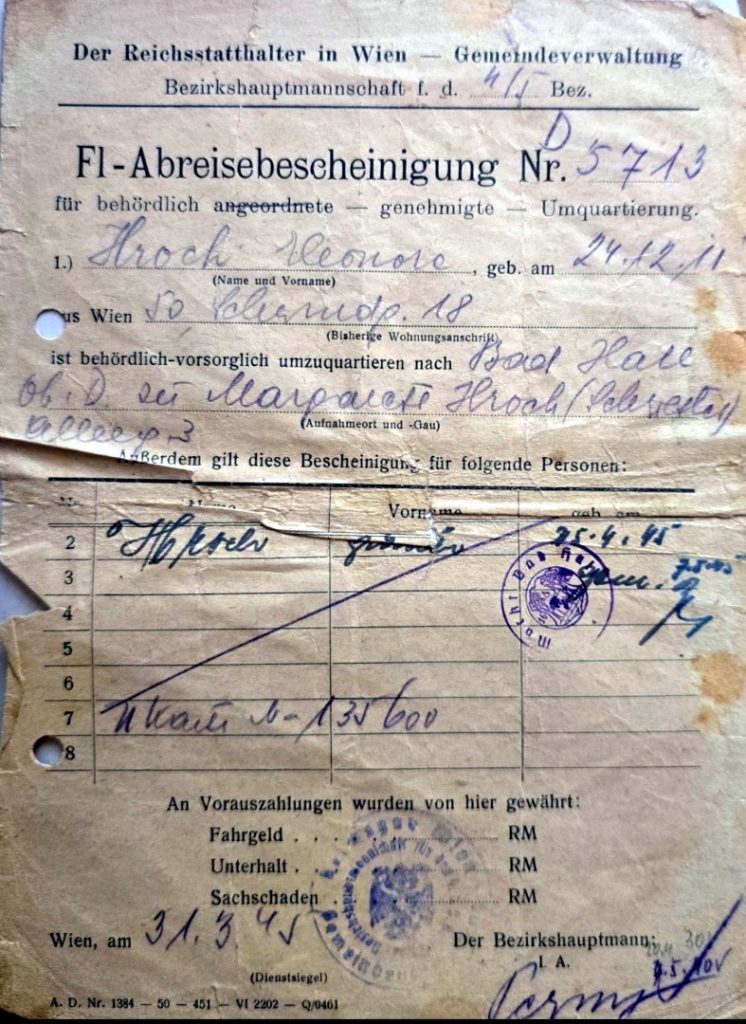 Der Reichsstatthalter in Wien — Gemeindeverwaltung
Bezirkshauptmannschaft f. d. 4/5 Bez.
D
Fl-Abreisebescheinigung Nr. 5713
für behördlich angeordnete — genehmigte — Umquartierung.
1.) Hroch Eleonore, geb. am 24.12.11
(Name und Vorname)
us Wien 50, 18
(Bisherige Wohnungsanschrift)
ist behördlich-vorsorglich umzuquartieren nach Bad Hall
Ob. D. zu Margarete Hroch (Schwester)
(Aufnahmeort und -Gau)
3
Außerdem gilt diese Bescheinigung für folgende Personen:
Vorname geb. am
2 Hroch 25.4.45
3 7.5.45
4
5
6
7 135600
8
Markt Bad Hall
An Vorauszahlungen wurden von hier gewährt:
Fahrgeld . . . RM
Unterhalt . RM
Sachschaden RM
Wien, am 31.3.45 Der Bezirkshauptmann:
I. A.
(Dienstsiegel)
A. D. Nr. 1384 — 50 — 451 — VI 2202 — Q/0461